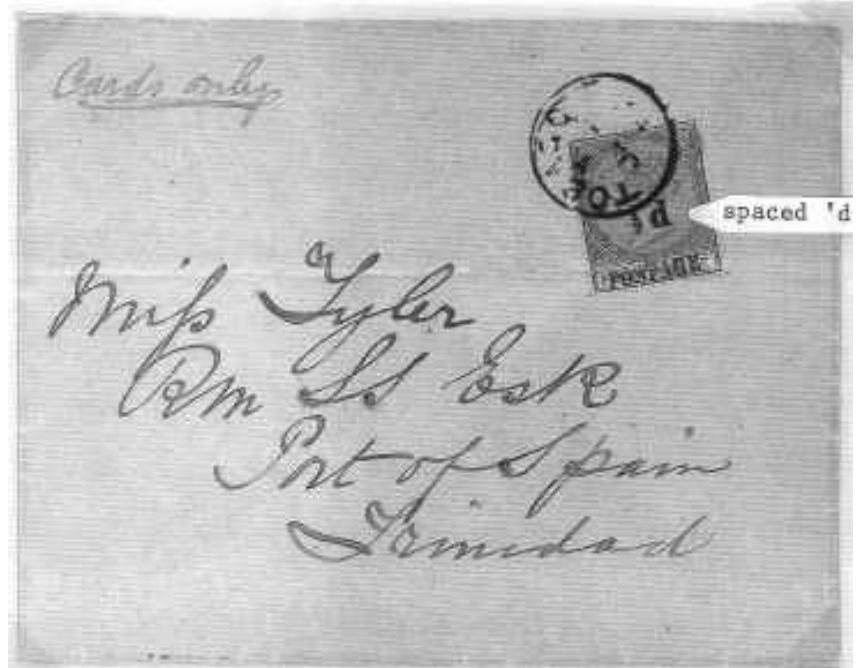 Cards only
TO
½d
spaced 'd
POSTAGE
Miss Tyler
RM SS Esk
Port of Spain
Trinidad